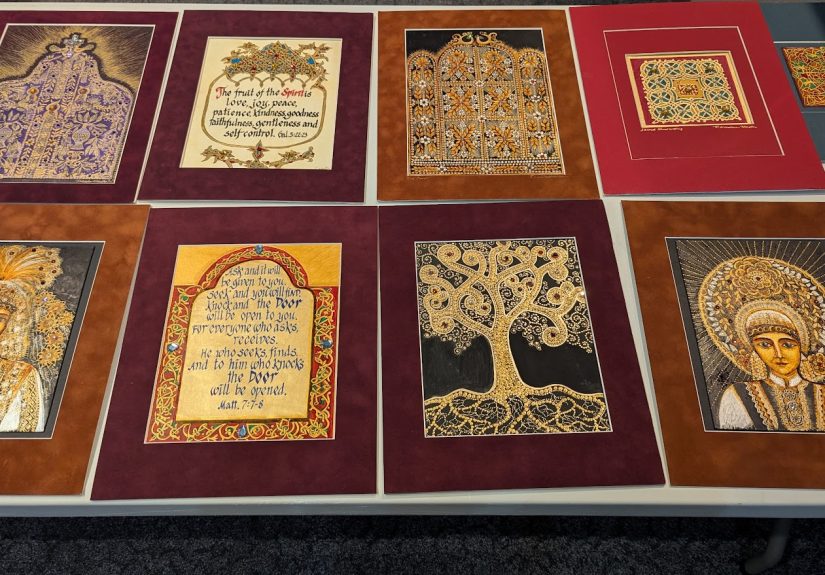 The fruit of the Spirit is
love, joy, peace,
patience, kindness, goodness
faithfulness, gentleness and
self-control. Gal. 5:22-23
Ask and it will
be given to you.
Seek and you will find,
knock and the Door
will be open to you.
For everyone who asks,
receives.
He who seeks, finds.
And to him who knocks
the Door
will be opened.
Matt. 7:7-8